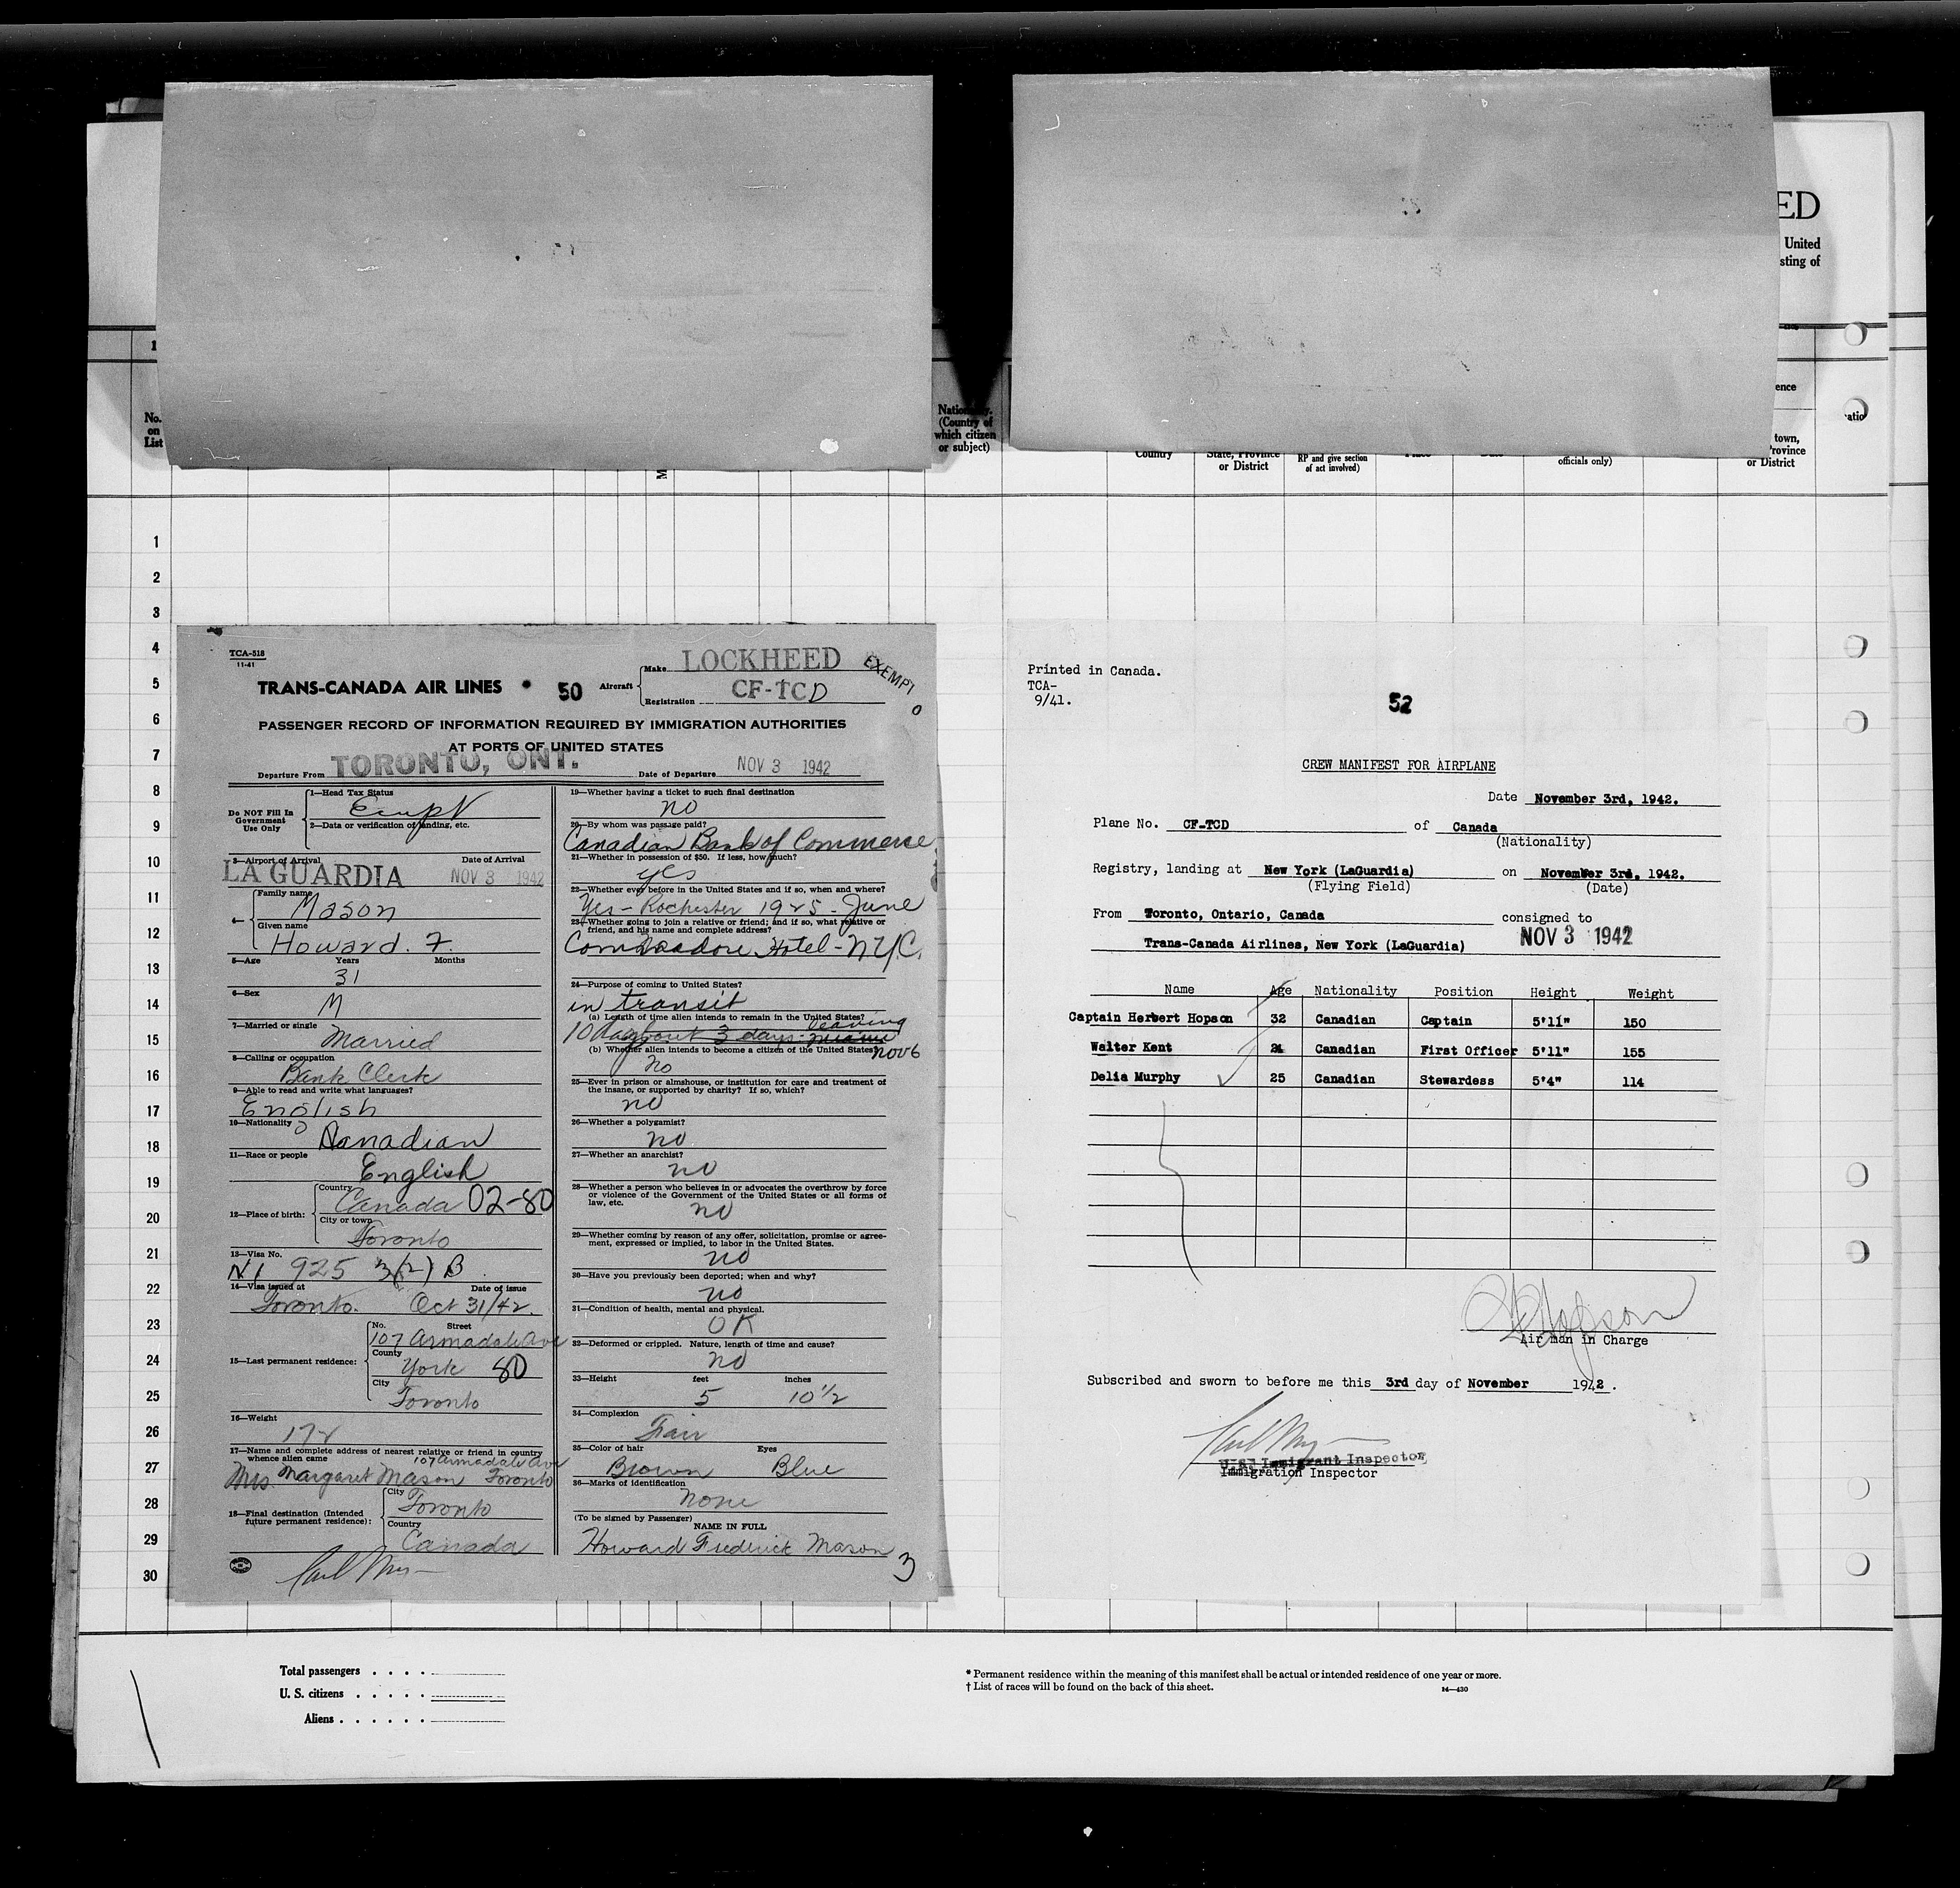 ED
United
sting of
1
ence
No.
on
List
Nationality.
(Country of
which citizen
or subject)
M
Country
State, Province
or District
RP and give section
of act involved)
officials only)
town,
Province
or District
1
2
3
4
5
6
7
8
9
10
11
12
13
14
15
16
17
18
19
20
21
22
23
24
25
26
27
28
29
30
TCA-518
11-41
TRANS-CANADA AIR LINES • 50
Aircraft
Make LOCKHEED
Registration CF-TCD
EXEMPT
0
PASSENGER RECORD OF INFORMATION REQUIRED BY IMMIGRATION AUTHORITIES
AT PORTS OF UNITED STATES
Departure From TORONTO, ONT. Date of Departure NOV 3 1942
Do NOT Fill In
Government
Use Only
1—Head Tax Status
2—Data or verification of landing, etc.
3—Airport of Arrival Date of Arrival
LA GUARDIA NOV 3 1942
4— Family name
Mason
Given name
Howard. F.
5—Age Years Months
31
6—Sex
M
7—Married or single
Married
8—Calling or occupation
Bank Clerk
9—Able to read and write what languages?
English
10—Nationality
Canadian
11—Race or people
English
12—Place of birth:
Country
Canada 02-80
City or town
Toronto
13—Visa No.
925 3(2) B
14—Visa issued at Date of issue
Toronto. Oct 31/42.
15—Last permanent residence:
No. Street
107 Armadale Ave
County
York 80
City
Toronto
16—Weight
172
17—Name and complete address of nearest relative or friend in country
whence alien came 107 Armadale Ave
Mrs. Margaret Mason Toronto
18—Final destination (Intended
future permanent residence):
City
Toronto
Country
Canada
19—Whether having a ticket to such final destination
no
20—By whom was passage paid?
Canadian Bank of Commerce
21—Whether in possession of $50. If less, how much?
yes
22—Whether ever before in the United States and if so, when and where?
Yes - Rochester 1925 - June
23—Whether going to join a relative or friend; and if so, what relative or
friend, and his name and complete address?
Commadore Hotel - N.Y.C.
24—Purpose of coming to United States?
in transit
(a) Length of time alien intends to remain in the United States?
10 days about 3 days - leaving
Miami Nov 6
(b) Whether alien intends to become a citizen of the United States?
no
25—Ever in prison or almshouse, or institution for care and treatment of
the insane, or supported by charity? If so, which?
no
26—Whether a polygamist?
no
27—Whether an anarchist?
no
28—Whether a person who believes in or advocates the overthrow by force
or violence of the Government of the United States or all forms of
law, etc.
no
29—Whether coming by reason of any offer, solicitation, promise or agree-
ment, expressed or implied, to labor in the United States.
no
30—Have you previously been deported; when and why?
no
31—Condition of health, mental and physical.
OK
32—Deformed or crippled. Nature, length of time and cause?
no
33—Height feet inches
5 10 1/2
34—Complexion
Fair
35—Color of hair Eyes
Brown Blue
36—Marks of identification
none
(To be signed by Passenger)
NAME IN FULL
Howard Frederick Mason
3
Printed in Canada.
TCA-
9/41.
52
CREW MANIFEST FOR AIRPLANE
Date November 3rd, 1942.
Plane No. CF-TCD of Canada
(Nationality)
Registry, landing at New York (LaGuardia) on November 3rd, 1942.
(Flying Field) (Date)
From Toronto, Ontario, Canada consigned to
Trans-Canada Airlines, New York (LaGuardia) NOV 3 1942
Name Age Nationality Position Height Weight
Captain Herbert Hopson 32 Canadian Captain 5'11" 150
Walter Kent 24 Canadian First Officer 5'11" 155
Delia Murphy 25 Canadian Stewardess 5'4" 114
H Hopson
Air man in Charge
Subscribed and sworn to before me this 3rd day of November 1942.
U.S. Immigrant Inspector
Immigration Inspector
Total passengers . . . .
U. S. citizens . . . . .
Aliens . . . . . .
* Permanent residence within the meaning of this manifest shall be actual or intended residence of one year or more.
† List of races will be found on the back of this sheet.
14—430